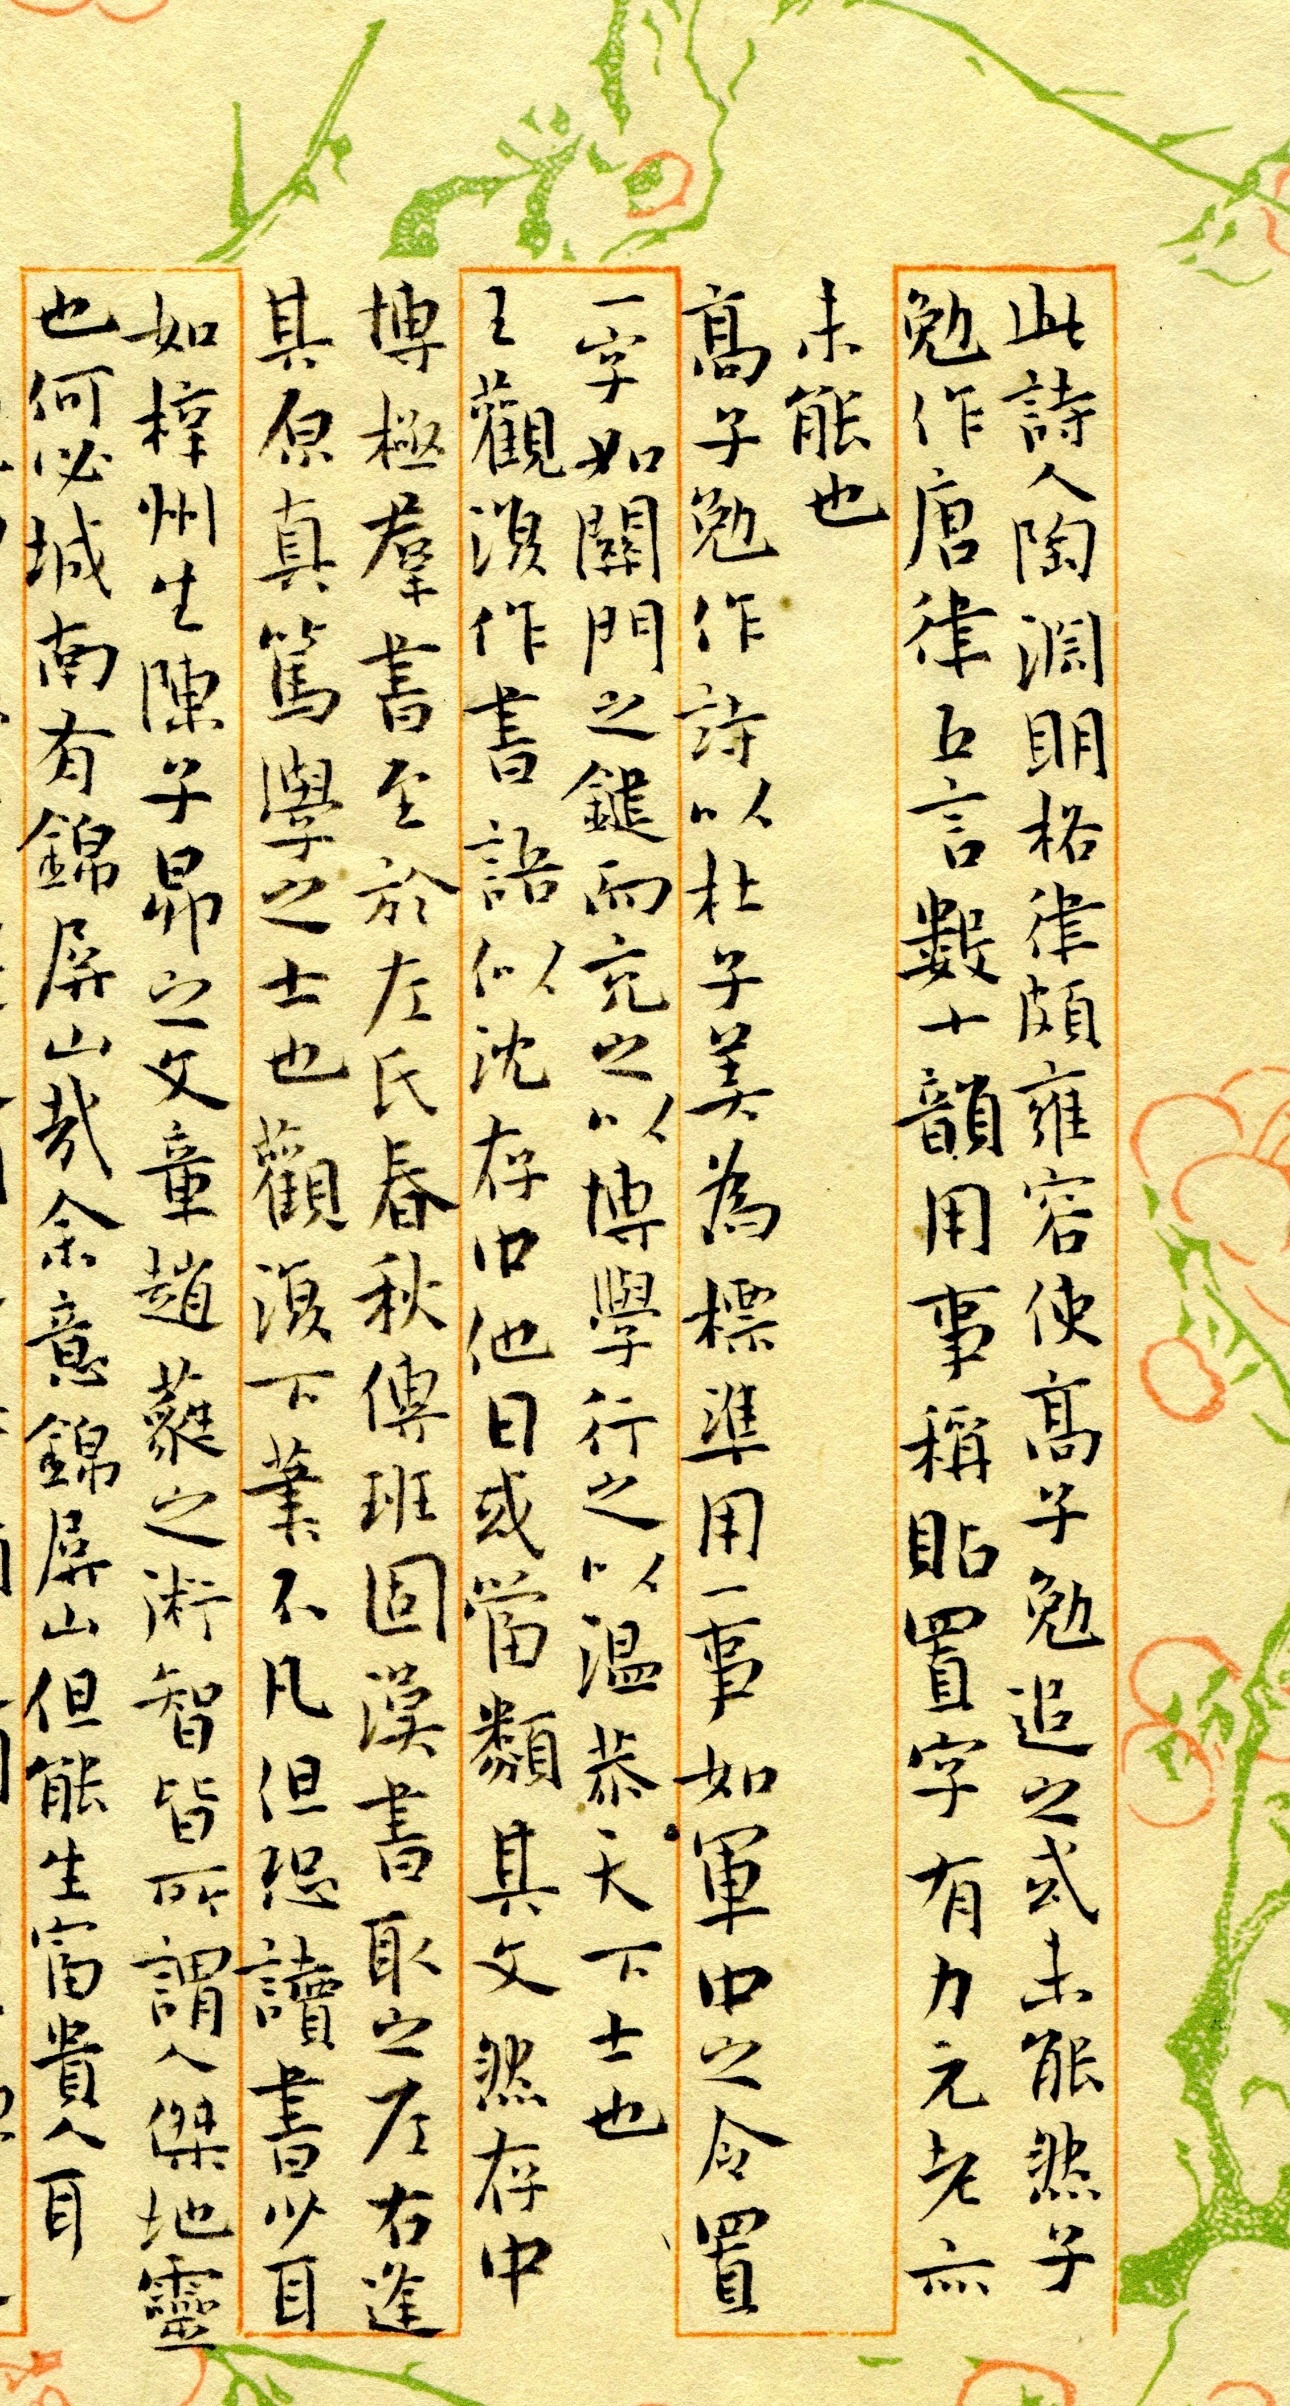 此詩人陶淵明格律頗雍容使高子勉追之或未能然子
勉作唐律五言數十韻用事穩貼置字有力元老亦
未能也
高子勉作詩以杜子美為標準用一事如軍中之令置
一字如關門之鍵而充之以博學行之以溫恭天下士也
王觀復作書語似沈存中他日或當類其文然存中
博極羣書至於左氏春秋傳班固漢書取之左右逢
其原真篤學之士也觀復下筆不凡但恐讀書少耳
如梓州生陳子昻之文章趙蕤之術智皆所謂人傑地靈
也何必城南有錦屏山哉余意錦屏山但能生富貴人耳